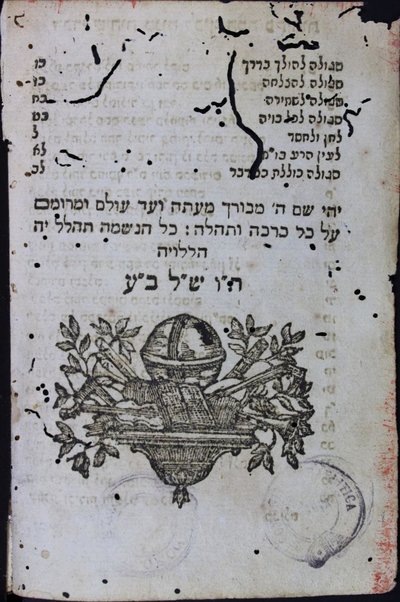 סגולה להולך בדרך כו
סגולה להצלחה כז
סגולה לשמירה כח
סגולה לכל כויה כט
לחן ולחסד ל
לעין הרע בר"מ לא
סגולה כוללת כל דבר לב
יהי שם ה' מבורך מעתה ועד עולם ומרומם
על כל ברכה ותהלה : כל הנשמה תהלל יה
הללויה
ה"ו ש"ל ב"ע